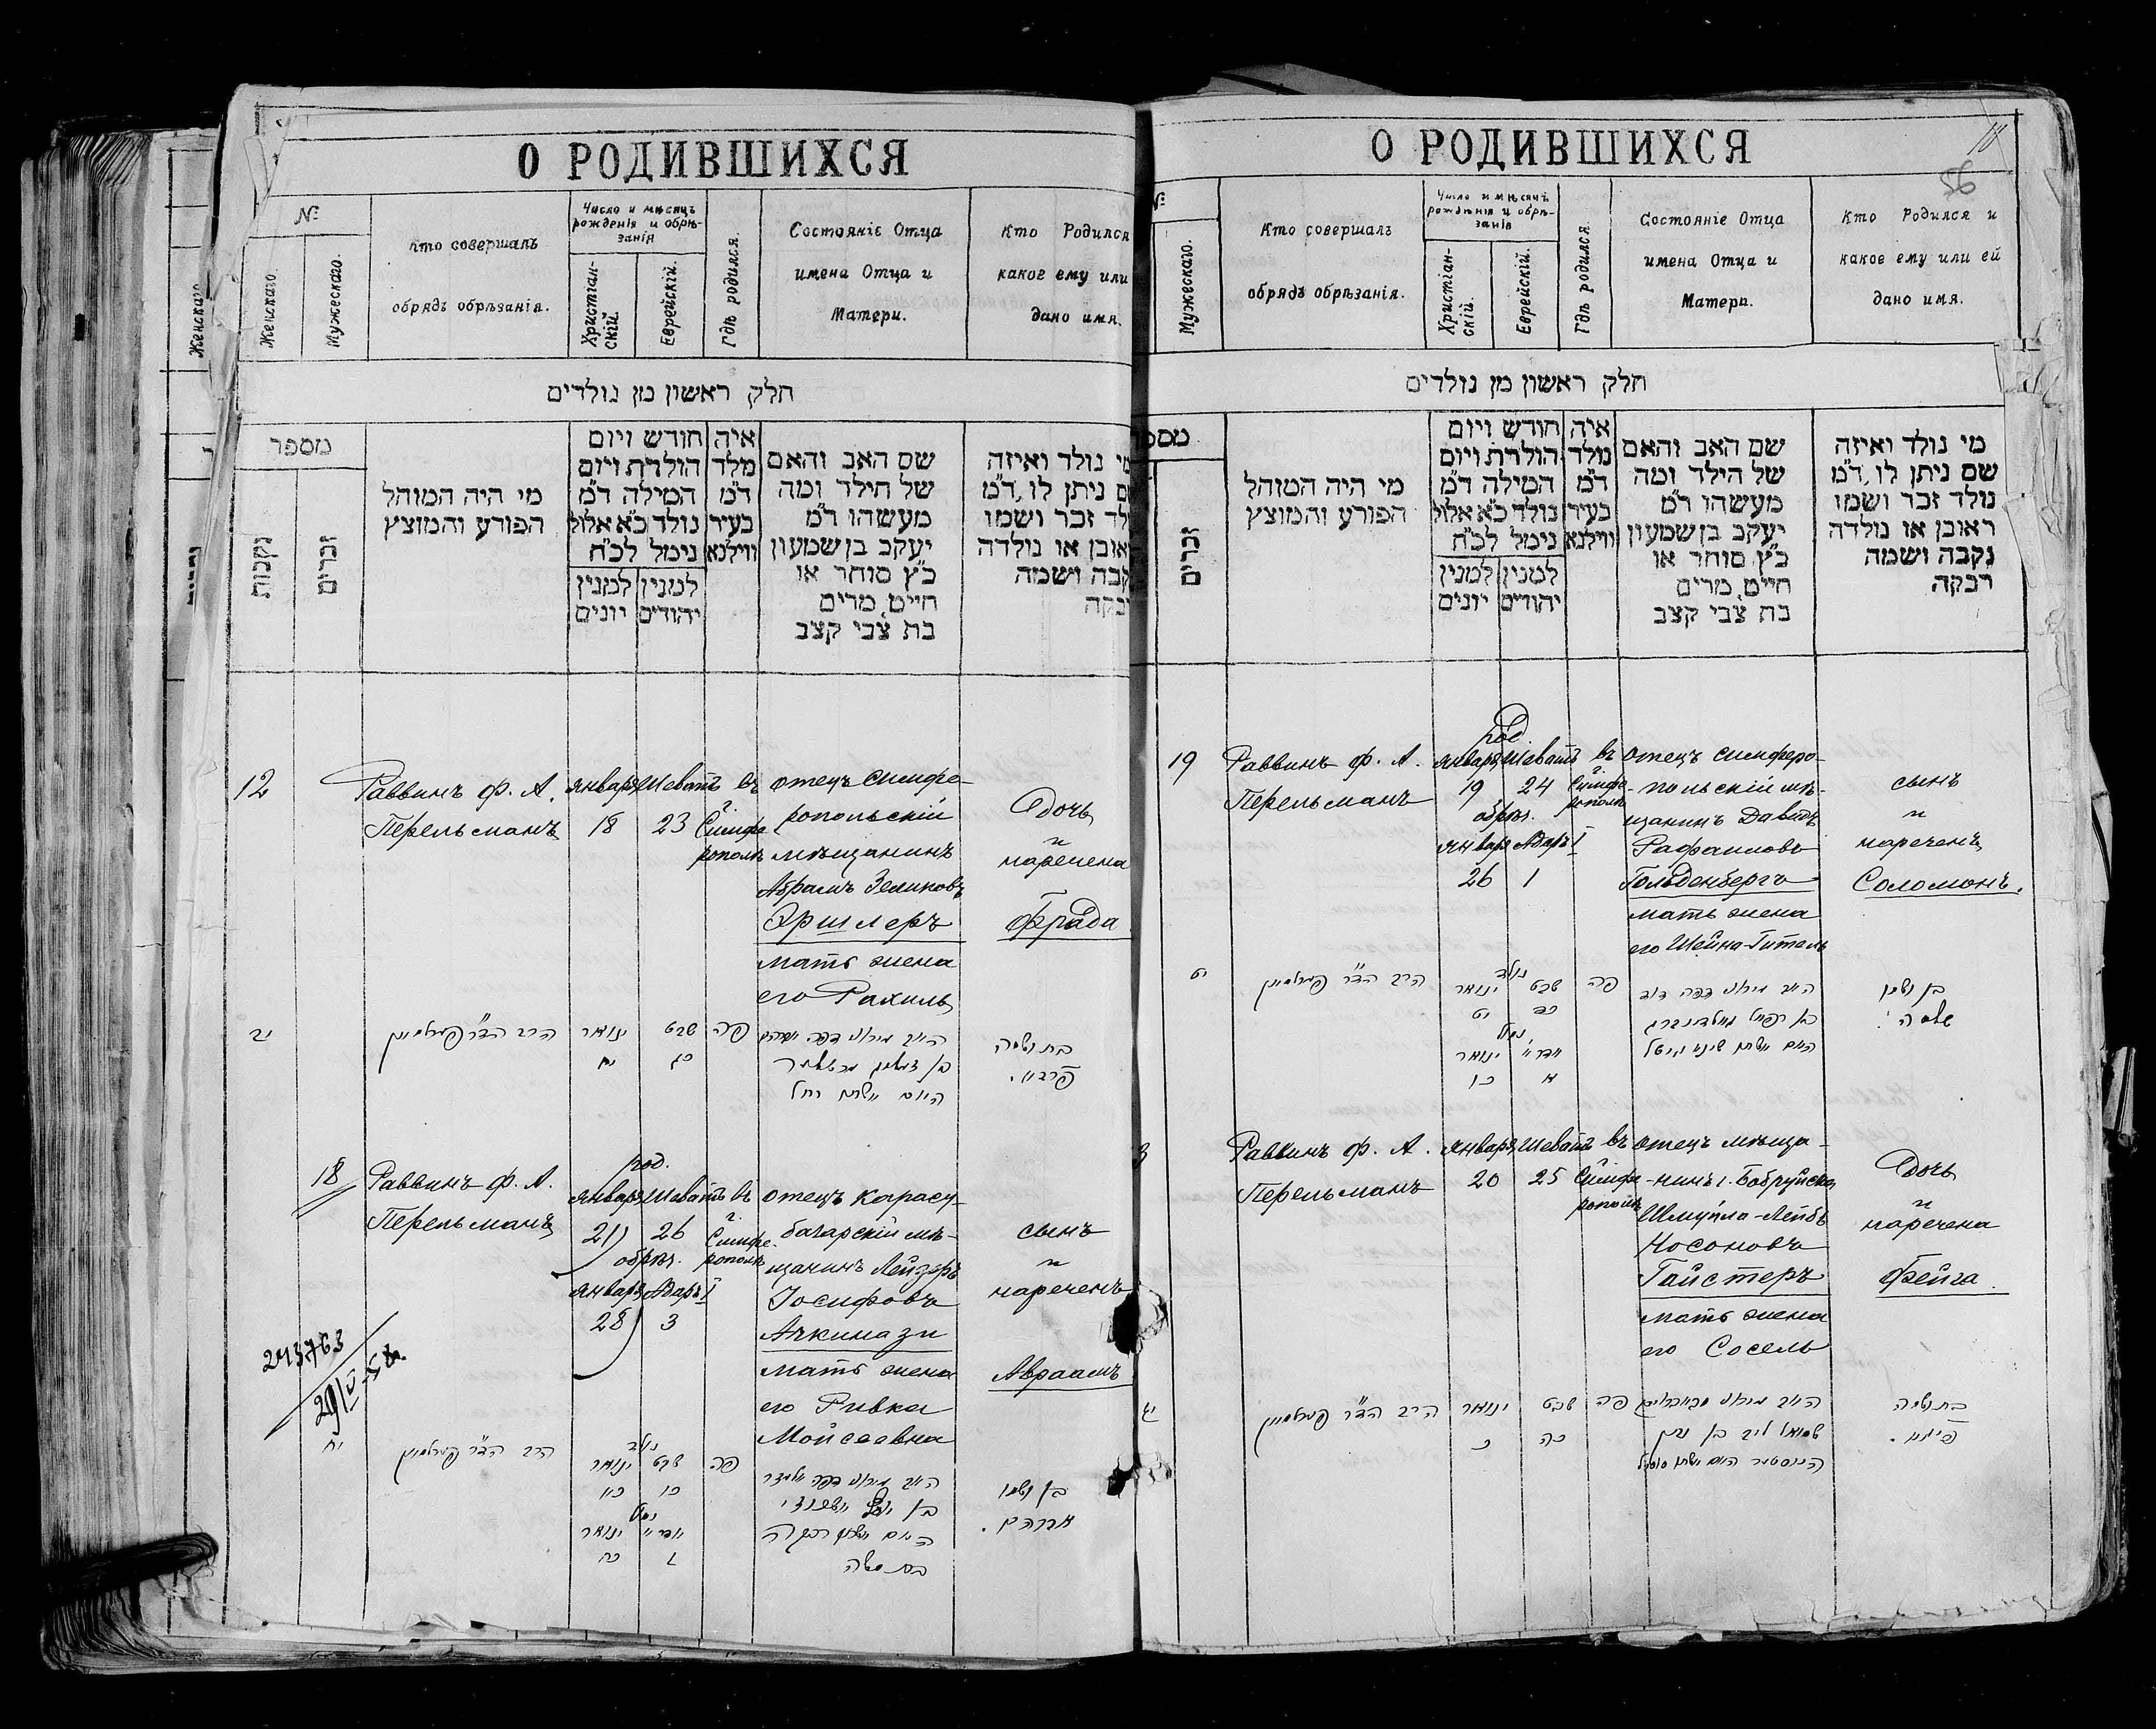 О РОДИВШИХСЯ
№
Женскаго.
Мужескаго.
Кто совершалъ
обрядъ обрѣзанія.
Число и мѣсяцъ
рожденія и обрѣ-
занія
Христіан-
скій.
Еврейскій.
Гдѣ родился.
Состояніе Отца
имена Отца и
Матери.
Кто Родился
какое ему или
дано имя.
חלק ראשון מן נולדים
מספר
נקבות
זכרים
מי היה המוהל
הפורע והמוצץ
חודש ויום
הולדת ויום
המילה ד"מ
נולד כ"א אלול
נימל לכ"ח
למנין
יהודים
למנין
יונים
איה
מלד
ד"מ
בעיר
ווילנא
שם האב והאם
של הילד ומה
מעשהו ד"מ
יעקב בן שמעון
כ"ץ סוחר או
חייט, מרים
בת צבי קצב
מי נולד ואיזה
שם ניתן לו, ד"מ
נולד זכר ושמו
ראובן או נולדה
נקבה ושמה
רבקה
12
Раввинъ Ф. А.
Перельманъ
января
18
Шеватъ
23
въ
г.
Симфе
рополѣ
отецъ симфе-
ропольскій
мѣщанинъ
Абрамъ Зеликовъ
Эршлеръ
мать жена
его Рахиль
Дочь
и
наречена
Фрада
יב
הרב הד"ר פערלמאן
ינואר
יח
שבט
כג
פה
היום ושמה רחל
בת ושמה
18
Раввинъ Ф. А.
Перельманъ
род.
января
21
Шеватъ
26
обрѣз.
января
28
Адаръ I
3
въ
г.
Симфе-
рополѣ
отецъ карасу-
базарскій мѣ-
щанинъ Лейзеръ
Іосифовъ
Ачкинази
мать жена
его Ривка
Мойсеевна
сынъ
и
нареченъ
Авраамъ
243763
29/V-58.
יח
הרב הד"ר פערלמאן
נולד
ינואר
שבט
כו
נמול
ינואר
כח
ג
פה
בת משה
בן ושמו
אברהם.
О РОДИВШИХСЯ
11
96
№
Мужескаго.
Кто совершалъ
обрядъ обрѣзанія.
Число и мѣсяцъ
рожденія и обрѣ-
занія
Христіан-
скій.
Еврейскій.
Гдѣ родился.
Состояніе Отца
имена Отца и
Матери.
Кто Родился и
какое ему или ей
дано имя.
חלק ראשון מן נולדים
זכרים
מי היה המוהל
הפורע והמוצץ
חודש ויום
הולדת ויום
המילה ד"מ
נולד כ"א אלול
נימל לכ"ח
למנין
יהודים
למנין
יונים
איה
מלד
ד"מ
בעיר
ווילנא
שם האב והאם
של הילד ומה
מעשהו ד"מ
יעקב בן שמעון
כ"ץ סוחר או
חייט, מרים
בת צבי קצב
מי נולד ואיזה
שם ניתן לו, ד"מ
נולד זכר ושמו
ראובן או נולדה
נקבה ושמה
רבקה
19
Раввинъ Ф. А.
Перельманъ
род.
января
19
Шеватъ
24
обрѣз.
января
26
Адаръ I
1
въ
г.
Симфе-
рополѣ
отецъ симферо-
польскій мѣ-
щанинъ Давидъ
Рафаиловъ
Гольденбергъ
мать жена
его Шейна-Гитель
сынъ
и
нареченъ
Соломонъ.
יט
הרב הד"ר פערלמאן
נולד
ינואר
יט
שבט
כד
נמול
ינואר
כו
א
פה
בן ושמו
שלמה
Раввинъ Ф. А.
Перельманъ
января
20
Шеватъ
25
въ
Симфе
рополѣ
отецъ мѣща-
нинъ г. Бобруйска
Шмуйла-Лейбъ
Носоновъ
Гайстеръ
мать жена
его Сосель
Дочь
и
наречена
Фейга.
יג
הרב הד"ר פערלמאן
ינואר
כ
שבט
כה
פה
שמואל ליב בן נתן
בת ושמה